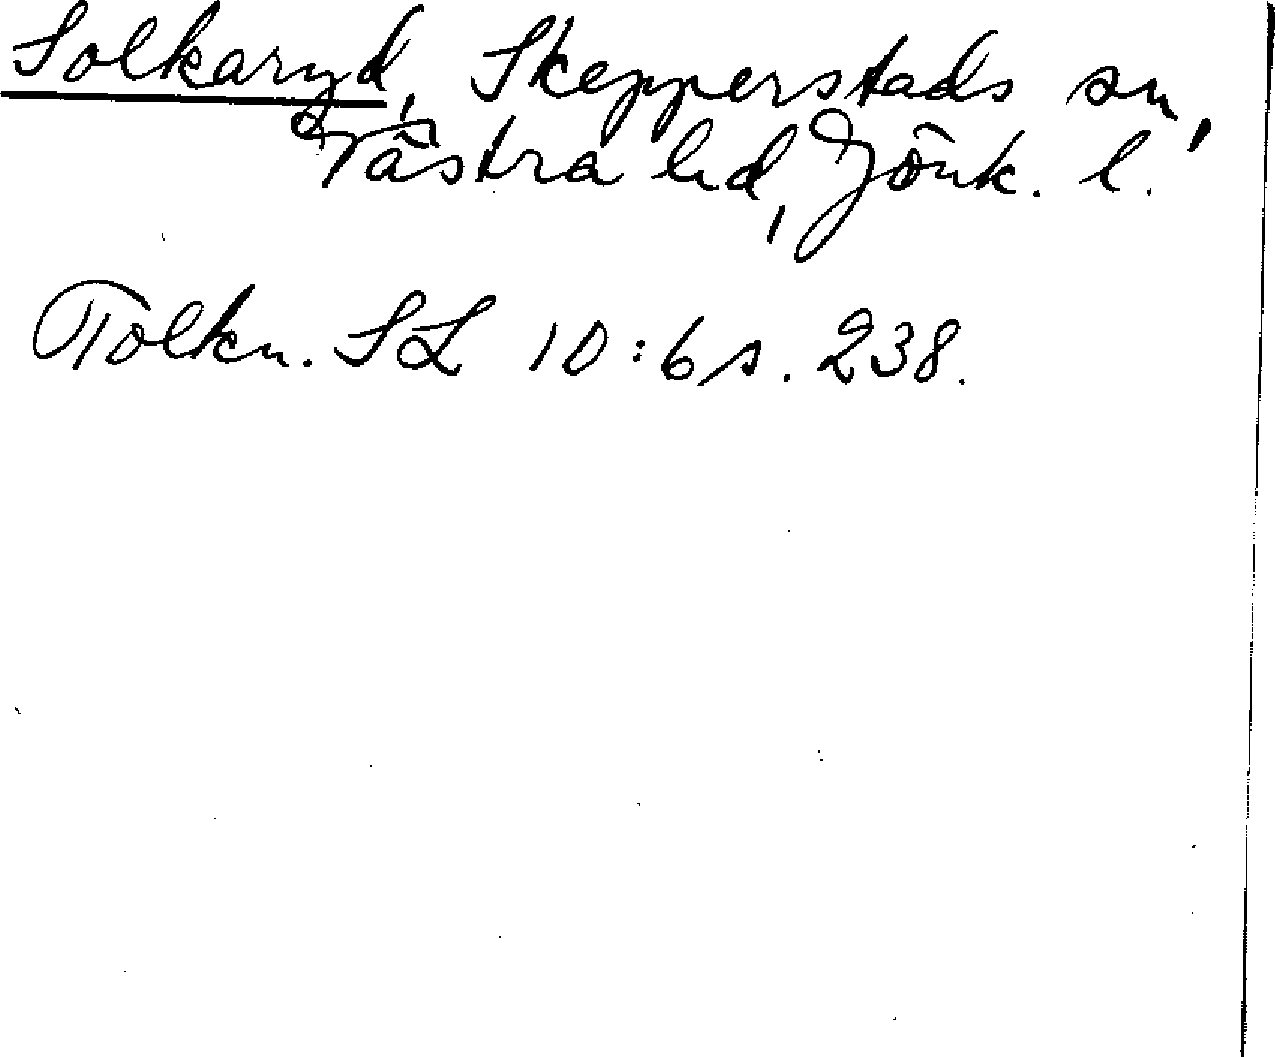 Solkaryd, Skepperstads sn,
Västra hd, Jönk. l.
Tolkn. SL 10:6 s. 238.